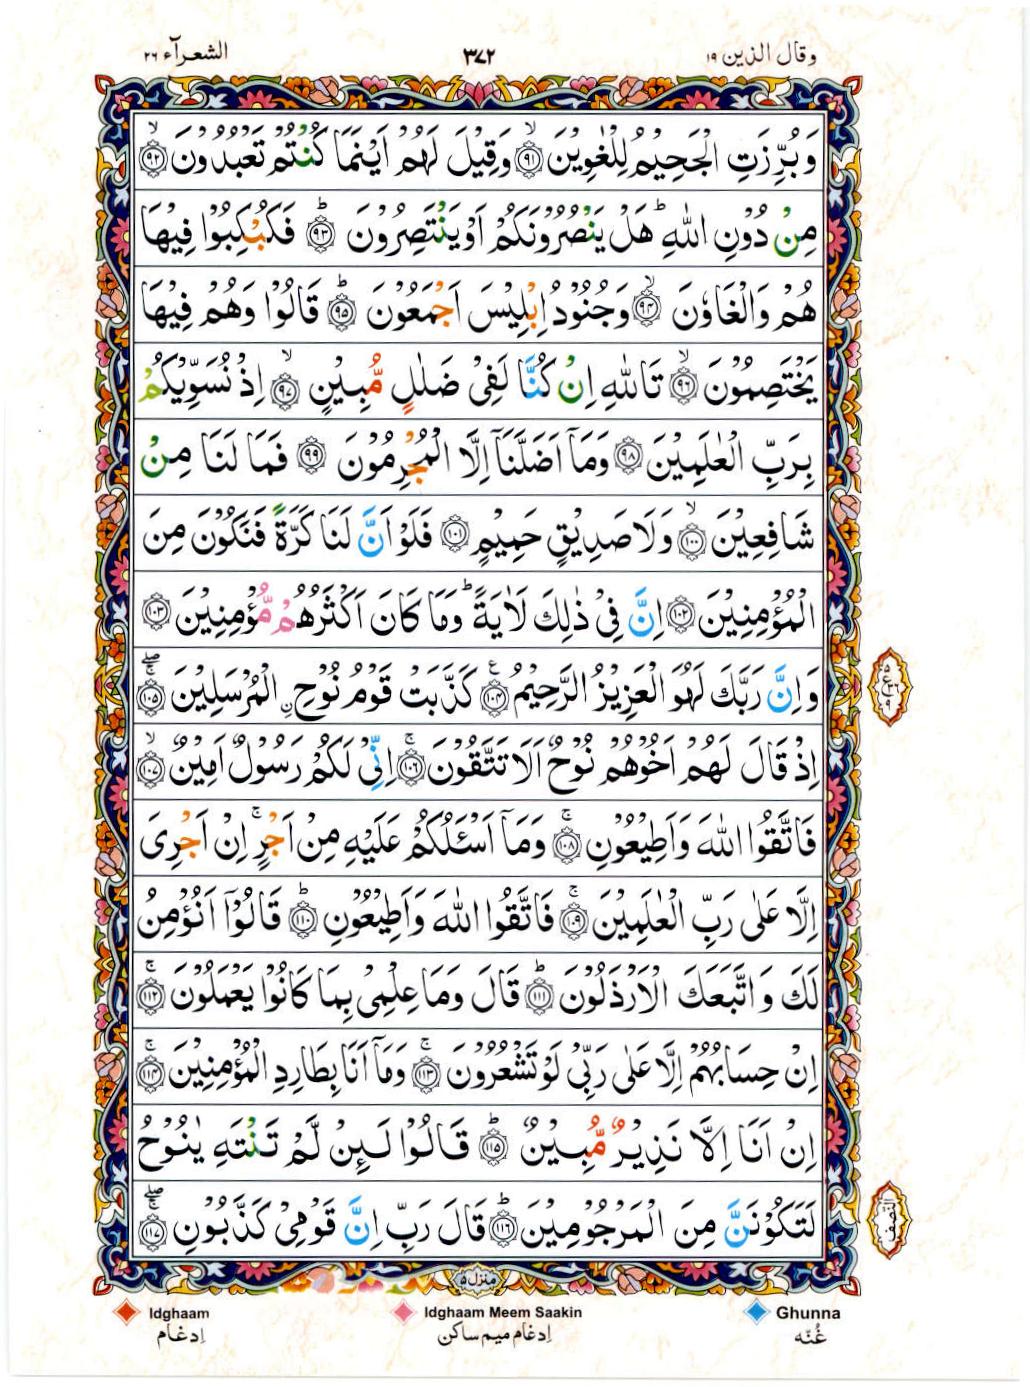 وقال الذین ۱۹ ۳۷۲ الشعرآء ۲۶
وَبُرِّزَتِ الْجَحِيْمُ لِلْغٰوِيْنَ ۙ﴿۹۱﴾ وَقِيْلَ لَهُمْ اَيْنَمَا كُنْتُمْ تَعْبُدُوْنَ ۙ﴿۹۲﴾
مِنْ دُوْنِ اللّٰهِ ؕ هَلْ يَنْصُرُوْنَكُمْ اَوْ يَنْتَصِرُوْنَ ؕ﴿۹۳﴾ فَكُبْكِبُوْا فِيْهَا
هُمْ وَالْغَاوٗنَ ۙ﴿۹۴﴾ وَجُنُوْدُ اِبْلِيْسَ اَجْمَعُوْنَ ؕ﴿۹۵﴾ قَالُوْا وَهُمْ فِيْهَا
يَخْتَصِمُوْنَ ۙ﴿۹۶﴾ تَاللّٰهِ اِنْ كُنَّا لَفِيْ ضَلٰلٍ مُّبِيْنٍ ۙ﴿۹۷﴾ اِذْ نُسَوِّيْكُمْ
بِرَبِّ الْعٰلَمِيْنَ ﴿۹۸﴾ وَمَآ اَضَلَّنَآ اِلَّا الْمُجْرِمُوْنَ ﴿۹۹﴾ فَمَا لَنَا مِنْ
شَافِعِيْنَ ۙ﴿۱۰۰﴾ وَلَا صَدِيْقٍ حَمِيْمٍ ﴿۱۰۱﴾ فَلَوْ اَنَّ لَنَا كَرَّةً فَنَكُوْنَ مِنَ
الْمُؤْمِنِيْنَ ﴿۱۰۲﴾ اِنَّ فِيْ ذٰلِكَ لَاٰيَةً ؕ وَمَا كَانَ اَكْثَرُهُمْ مُّؤْمِنِيْنَ ﴿۱۰۳﴾
وَاِنَّ رَبَّكَ لَهُوَ الْعَزِيْزُ الرَّحِيْمُ ۧ﴿۱۰۴﴾ كَذَّبَتْ قَوْمُ نُوْحِ ۨالْمُرْسَلِيْنَ ۖۚ﴿۱۰۵﴾
اِذْ قَالَ لَهُمْ اَخُوْهُمْ نُوْحٌ اَلَا تَتَّقُوْنَ ۚ﴿۱۰۶﴾ اِنِّيْ لَكُمْ رَسُوْلٌ اَمِيْنٌ ۙ﴿۱۰۷﴾
فَاتَّقُوا اللّٰهَ وَاَطِيْعُوْنِ ۚ﴿۱۰۸﴾ وَمَآ اَسْـَٔلُكُمْ عَلَيْهِ مِنْ اَجْرٍ ۚ اِنْ اَجْرِيَ
اِلَّا عَلٰى رَبِّ الْعٰلَمِيْنَ ۚ﴿۱۰۹﴾ فَاتَّقُوا اللّٰهَ وَاَطِيْعُوْنِ ؕ﴿۱۱۰﴾ قَالُوْٓا اَنُؤْمِنُ
لَكَ وَاتَّبَعَكَ الْاَرْذَلُوْنَ ؕ﴿۱۱۱﴾ قَالَ وَمَا عِلْمِيْ بِمَا كَانُوْا يَعْمَلُوْنَ ۚ﴿۱۱۲﴾
اِنْ حِسَابُهُمْ اِلَّا عَلٰى رَبِّيْ لَوْ تَشْعُرُوْنَ ۚ﴿۱۱۳﴾ وَمَآ اَنَا بِطَارِدِ الْمُؤْمِنِيْنَ ۚ﴿۱۱۴﴾
اِنْ اَنَا اِلَّا نَذِيْرٌ مُّبِيْنٌ ؕ﴿۱۱۵﴾ قَالُوْا لَىِٕنْ لَّمْ تَنْتَهِ يٰنُوْحُ
لَتَكُوْنَنَّ مِنَ الْمَرْجُوْمِيْنَ ؕ﴿۱۱۶﴾ قَالَ رَبِّ اِنَّ قَوْمِيْ كَذَّبُوْنِ ۖۚ﴿۱۱۷﴾
النصف
منزل ۵
Idghaam Idghaam Meem Saakin Ghunna
اِدغام اِدغام میم ساکن غُنّه